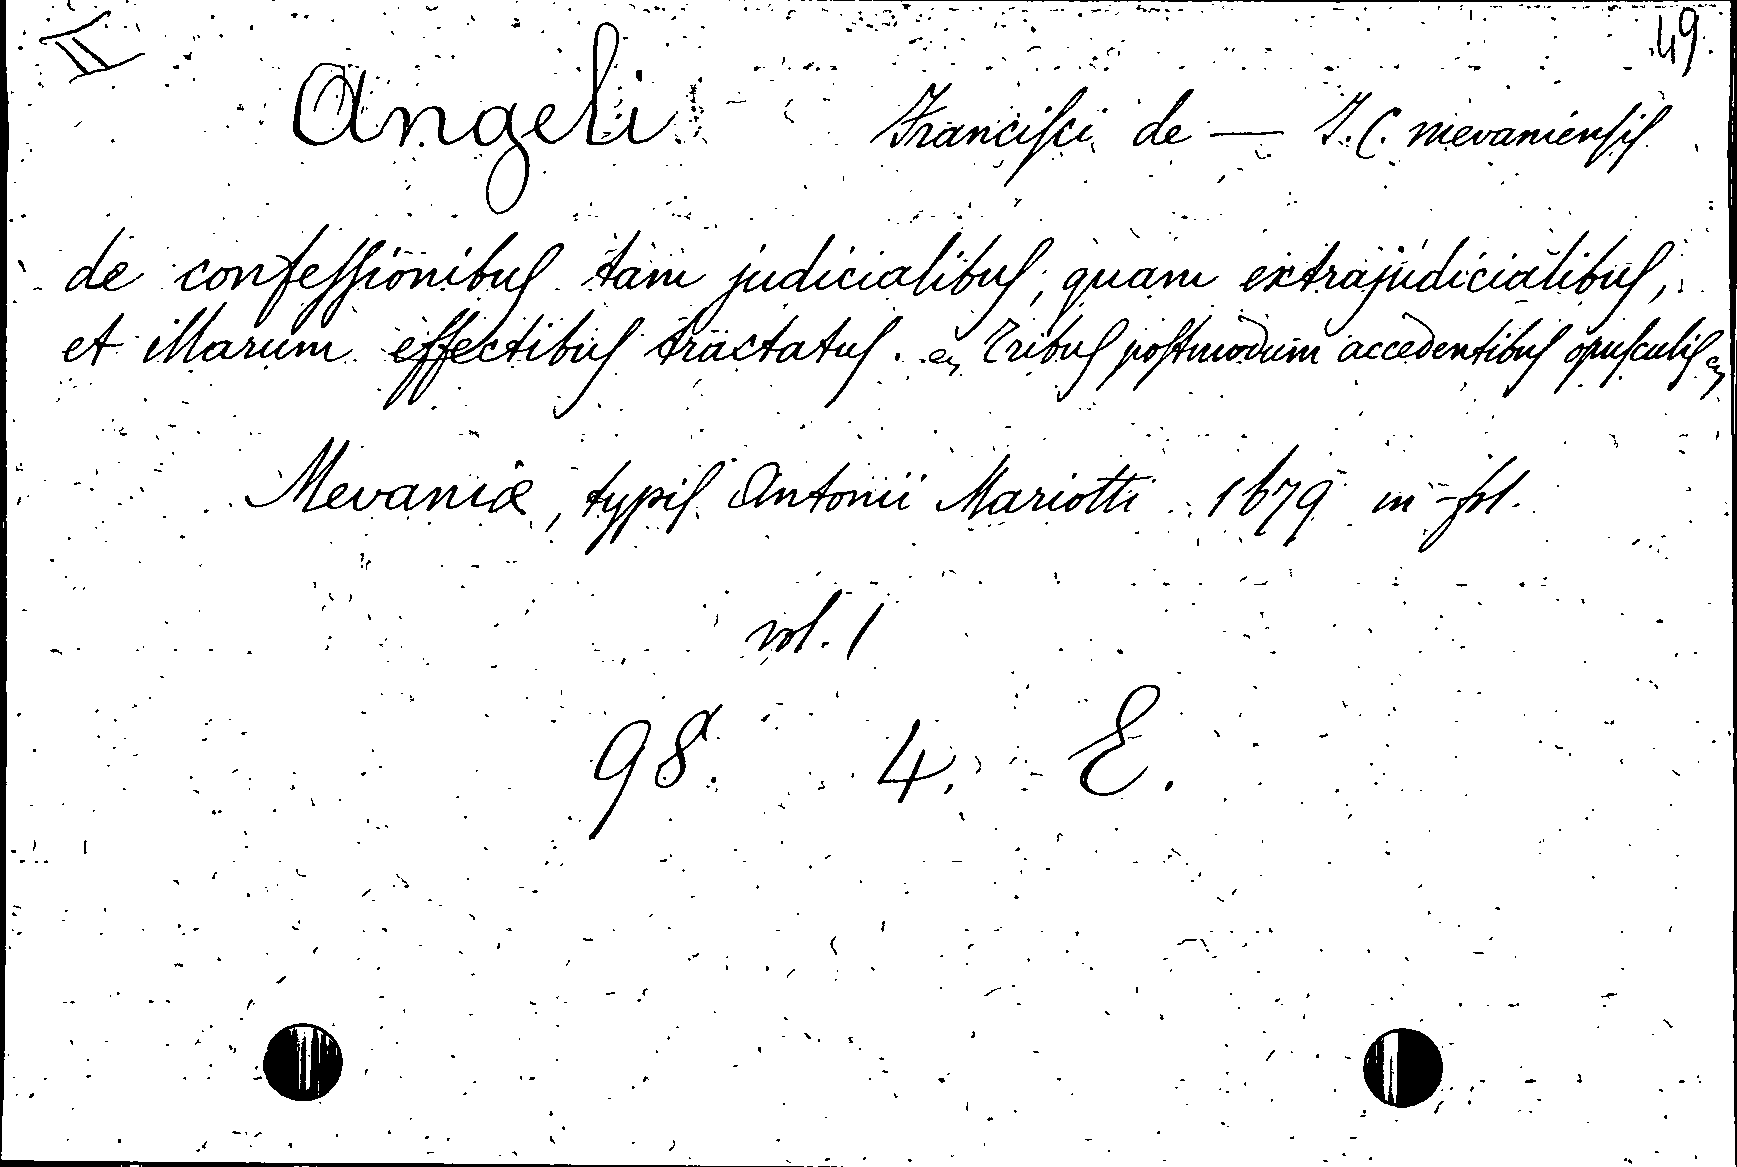 II
49.
Angeli Franciſci de — J. C. mevaniensis
de confeſſionibus tam judicialibus, quam extrajudicialibus,
et illarum effectibus tractatus. Tribus poſtmodum accedentibus opuſculis
Mevaniæ, typis Antonii Mariotti 1679 in-fol.
vol. 1
98. 4. E.